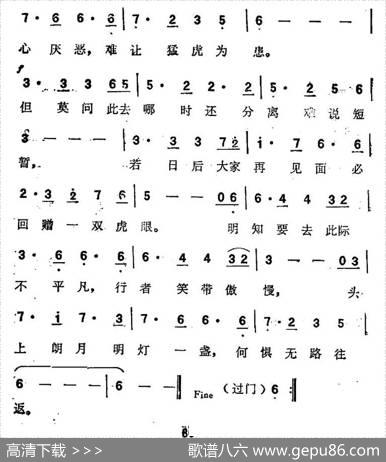 7· 6 6·6 | 7· 2 3 5 | 6 — — — |
心厌恶，难让猛虎为患。
f
3· 3 3 65 | 5· 2 2· 2 | 5· 2 5 6 |
但莫问此去哪时还分离难说短
3 — — — | 3· 3 3 72 | i· 7 6· 6 |
暂，若日后大家再见面必
2· 3 2 7 6 | 5 — — 06 | 6· 4 4 32 |
回赠一双虎眼。明知要去此际
3· 6 6· 6 | 6· 4 4 32 | 3 — — 03 |
不平凡，行者笑带傲慢，头
7· i 7· 3 | 7· 6 6· 6 | 7· 2 3 5 |
上朗月明灯一盏，何惧无路往
6 — — — | 6 — — :‖ Fine (过门) 6 :‖
返。
6
高清下载 >>> 歌谱八六 www.gepu86.com